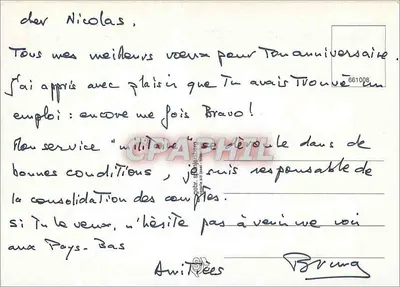 cher Nicolas,
Tous mes meilleurs vœux pour Ton anniversaire.
J'ai appris avec plaisir que Tu avais Trouvé un
661008
emploi : encore une fois Bravo !
Mon service "militaire" se déroule dans de
CPAPHIL
bonnes conditions, je suis responsable de
la consolidation des comptes.
Si Tu le veux, n'hésite pas à venir me voir
aux Pays-Bas
Amitiées
Bruno